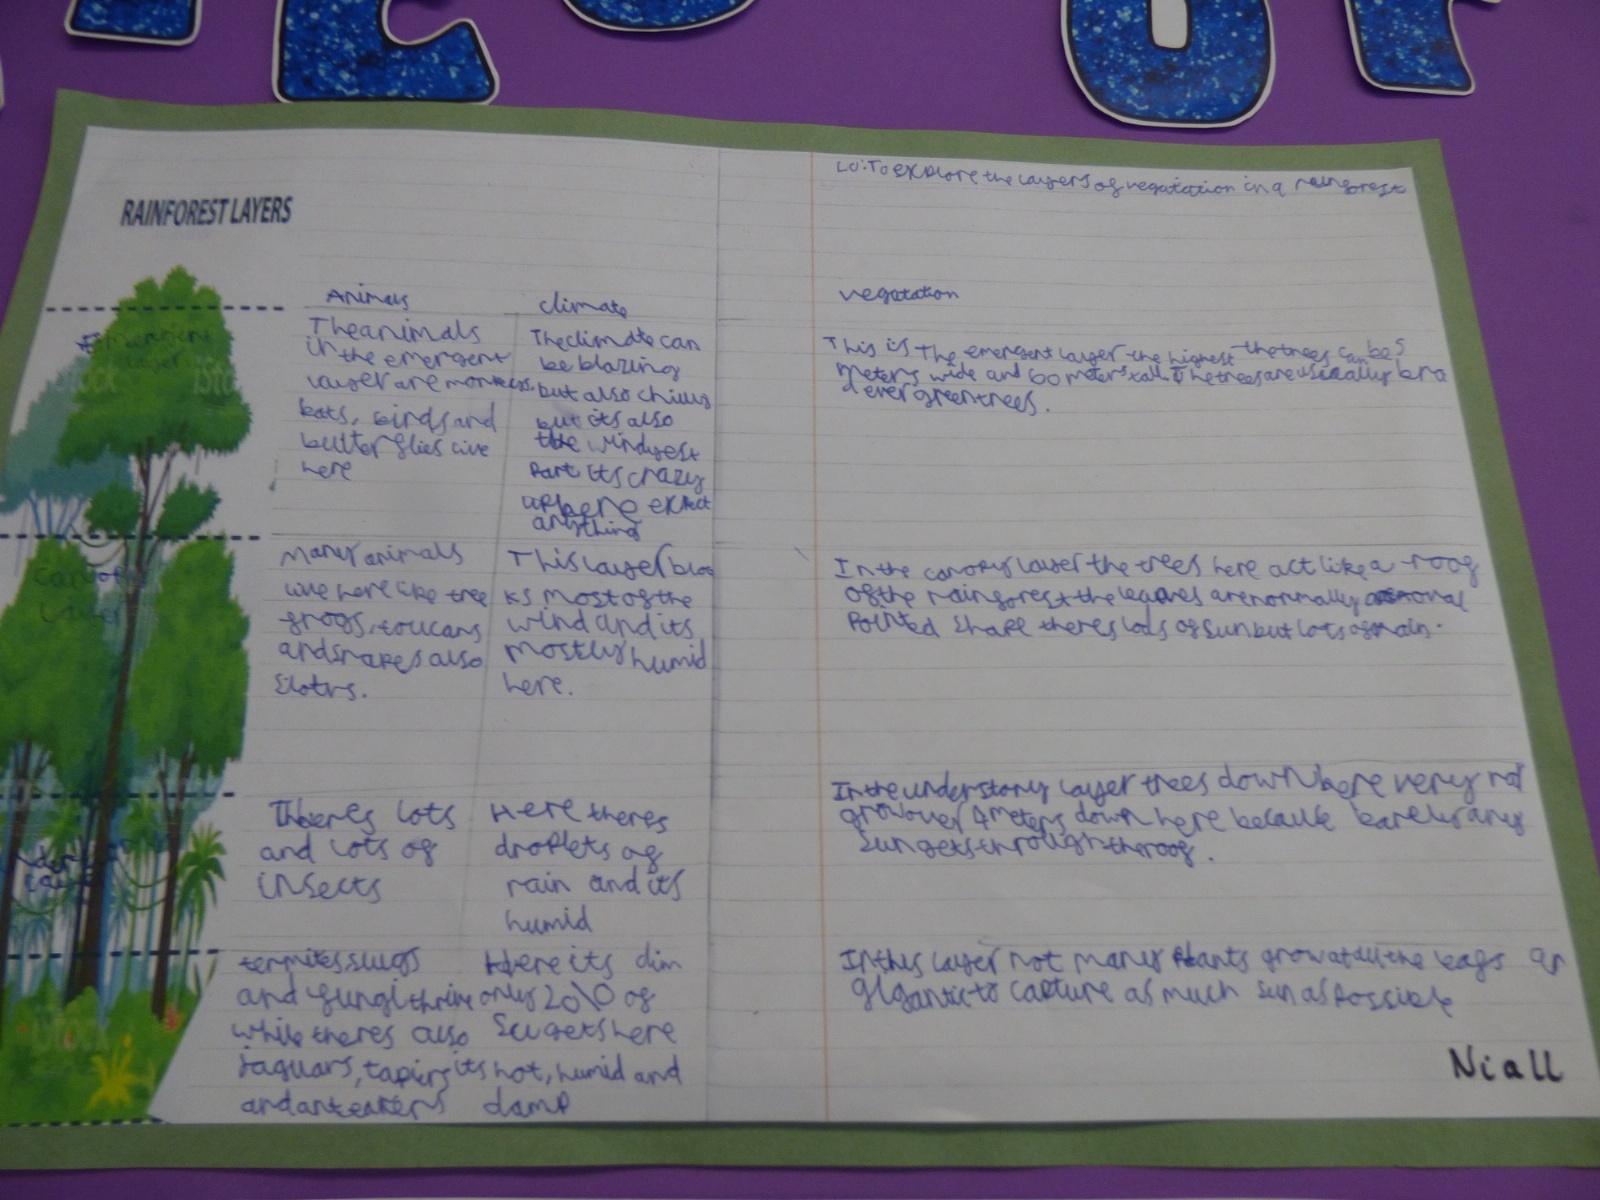 LO: To explore the layers of vegatation in a rainforest
RAINFOREST LAYERS
Animals
climate
vegatation
Emergent
layer
The animals
in the emergent
layer are monkeys,
bats, birds and
butterflies live
here
The climate can
be blazing
but also chilly
but its also
the windyest
part its crazy
up here expect
anything
This is The emergent layer the highest the trees can be 5
meters wide and 60 meters tall. The trees are usually bro
d evergreen trees.
Canopy
Layer
Many animals
live here like tree
frogs, toucans
and snakes also
Sloths.
This layer bloc
ks most of the
wind and its
mostly humid
here.
In the canopy layer the trees here act like a roof
of the rainforest the leaves are normally oval
pointed shape theres lods of sun but lots of rain.
Theres lots
and lots of
insects
Here theres
droplets of
rain and its
humid
In the understory layer trees down here very not
grow over 4 meters down here because barely any
Sun gets through the roof.
termites slugs
and fungi thrive
while theres also
Jaguars, tapirs
and anteaters
Here its dim
only 2% of
gets here
its hot, humid and
damp
In this layer not many Plants grow at all the leafs ar
gigantic to capture as much sun as Possible
Niall